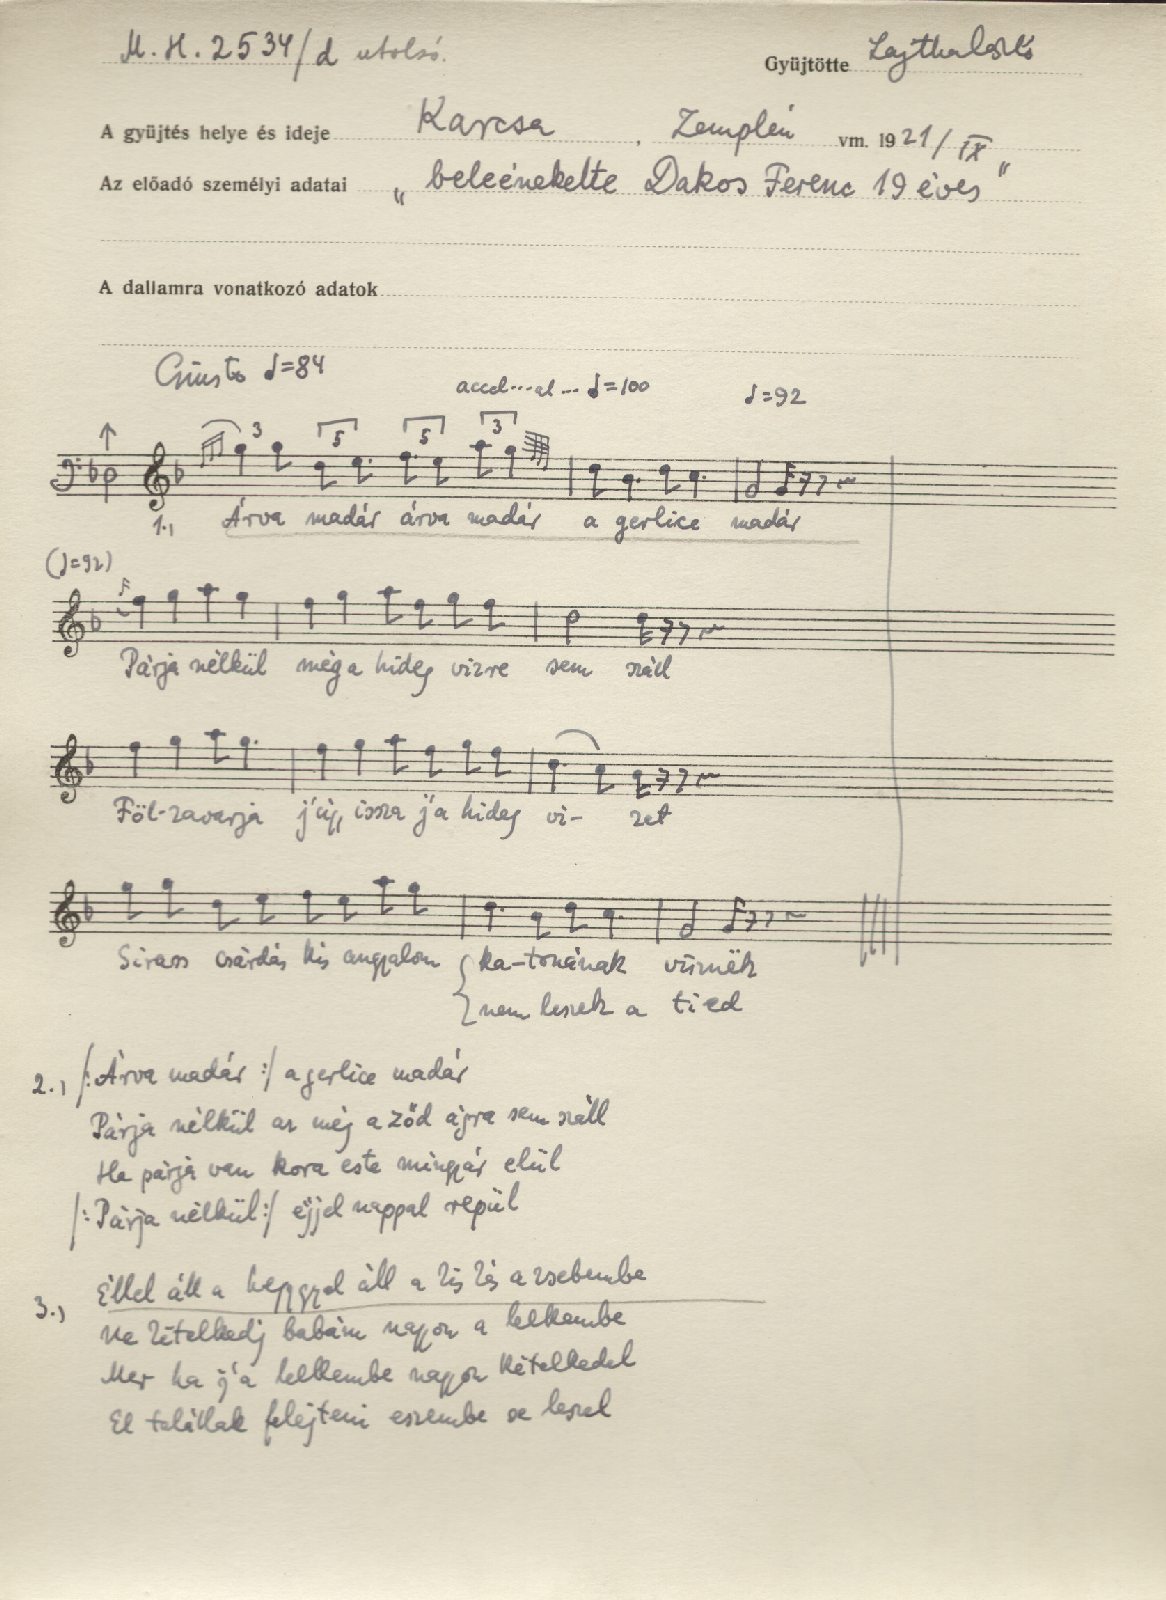 M. H. 2534/d utolsó.
Gyüjtötte Lajtha László
A gyüjtés helye és ideje Karcsa, Zemplén vm. 1921/IX
Az előadó személyi adatai „beleénekelte Dakos Ferenc 19 éves"
A dallamra vonatkozó adatok
Giusto ♩=84
accel...al... ♩=100 ♩=92
3 5 5 3
1., Árva madár árva madár a gerlice madár
(♩=92)
Párja nélkül még a hideg vizre sem száll
Föl-zavarja j'úgy issza j'a hideg vi- zet
Sirass csárdás kis angyalom ka-tonának visznek
nem leszek a tied
2., /: Árva madár :/ a gerlice madár
Párja nélkül az még a zöd ágra sem száll
Ha párja van kora este mingyár elül
/: Párja nélkül :/ éjjel nappal repül
3., Éllel áll a heggyel áll a kis kés a zsebembe
Ne kételkedj babám nagyon a lelkembe
Mer ha j'a lelkembe nagyon kételkedel
El talállak felejteni eszembe se leszel